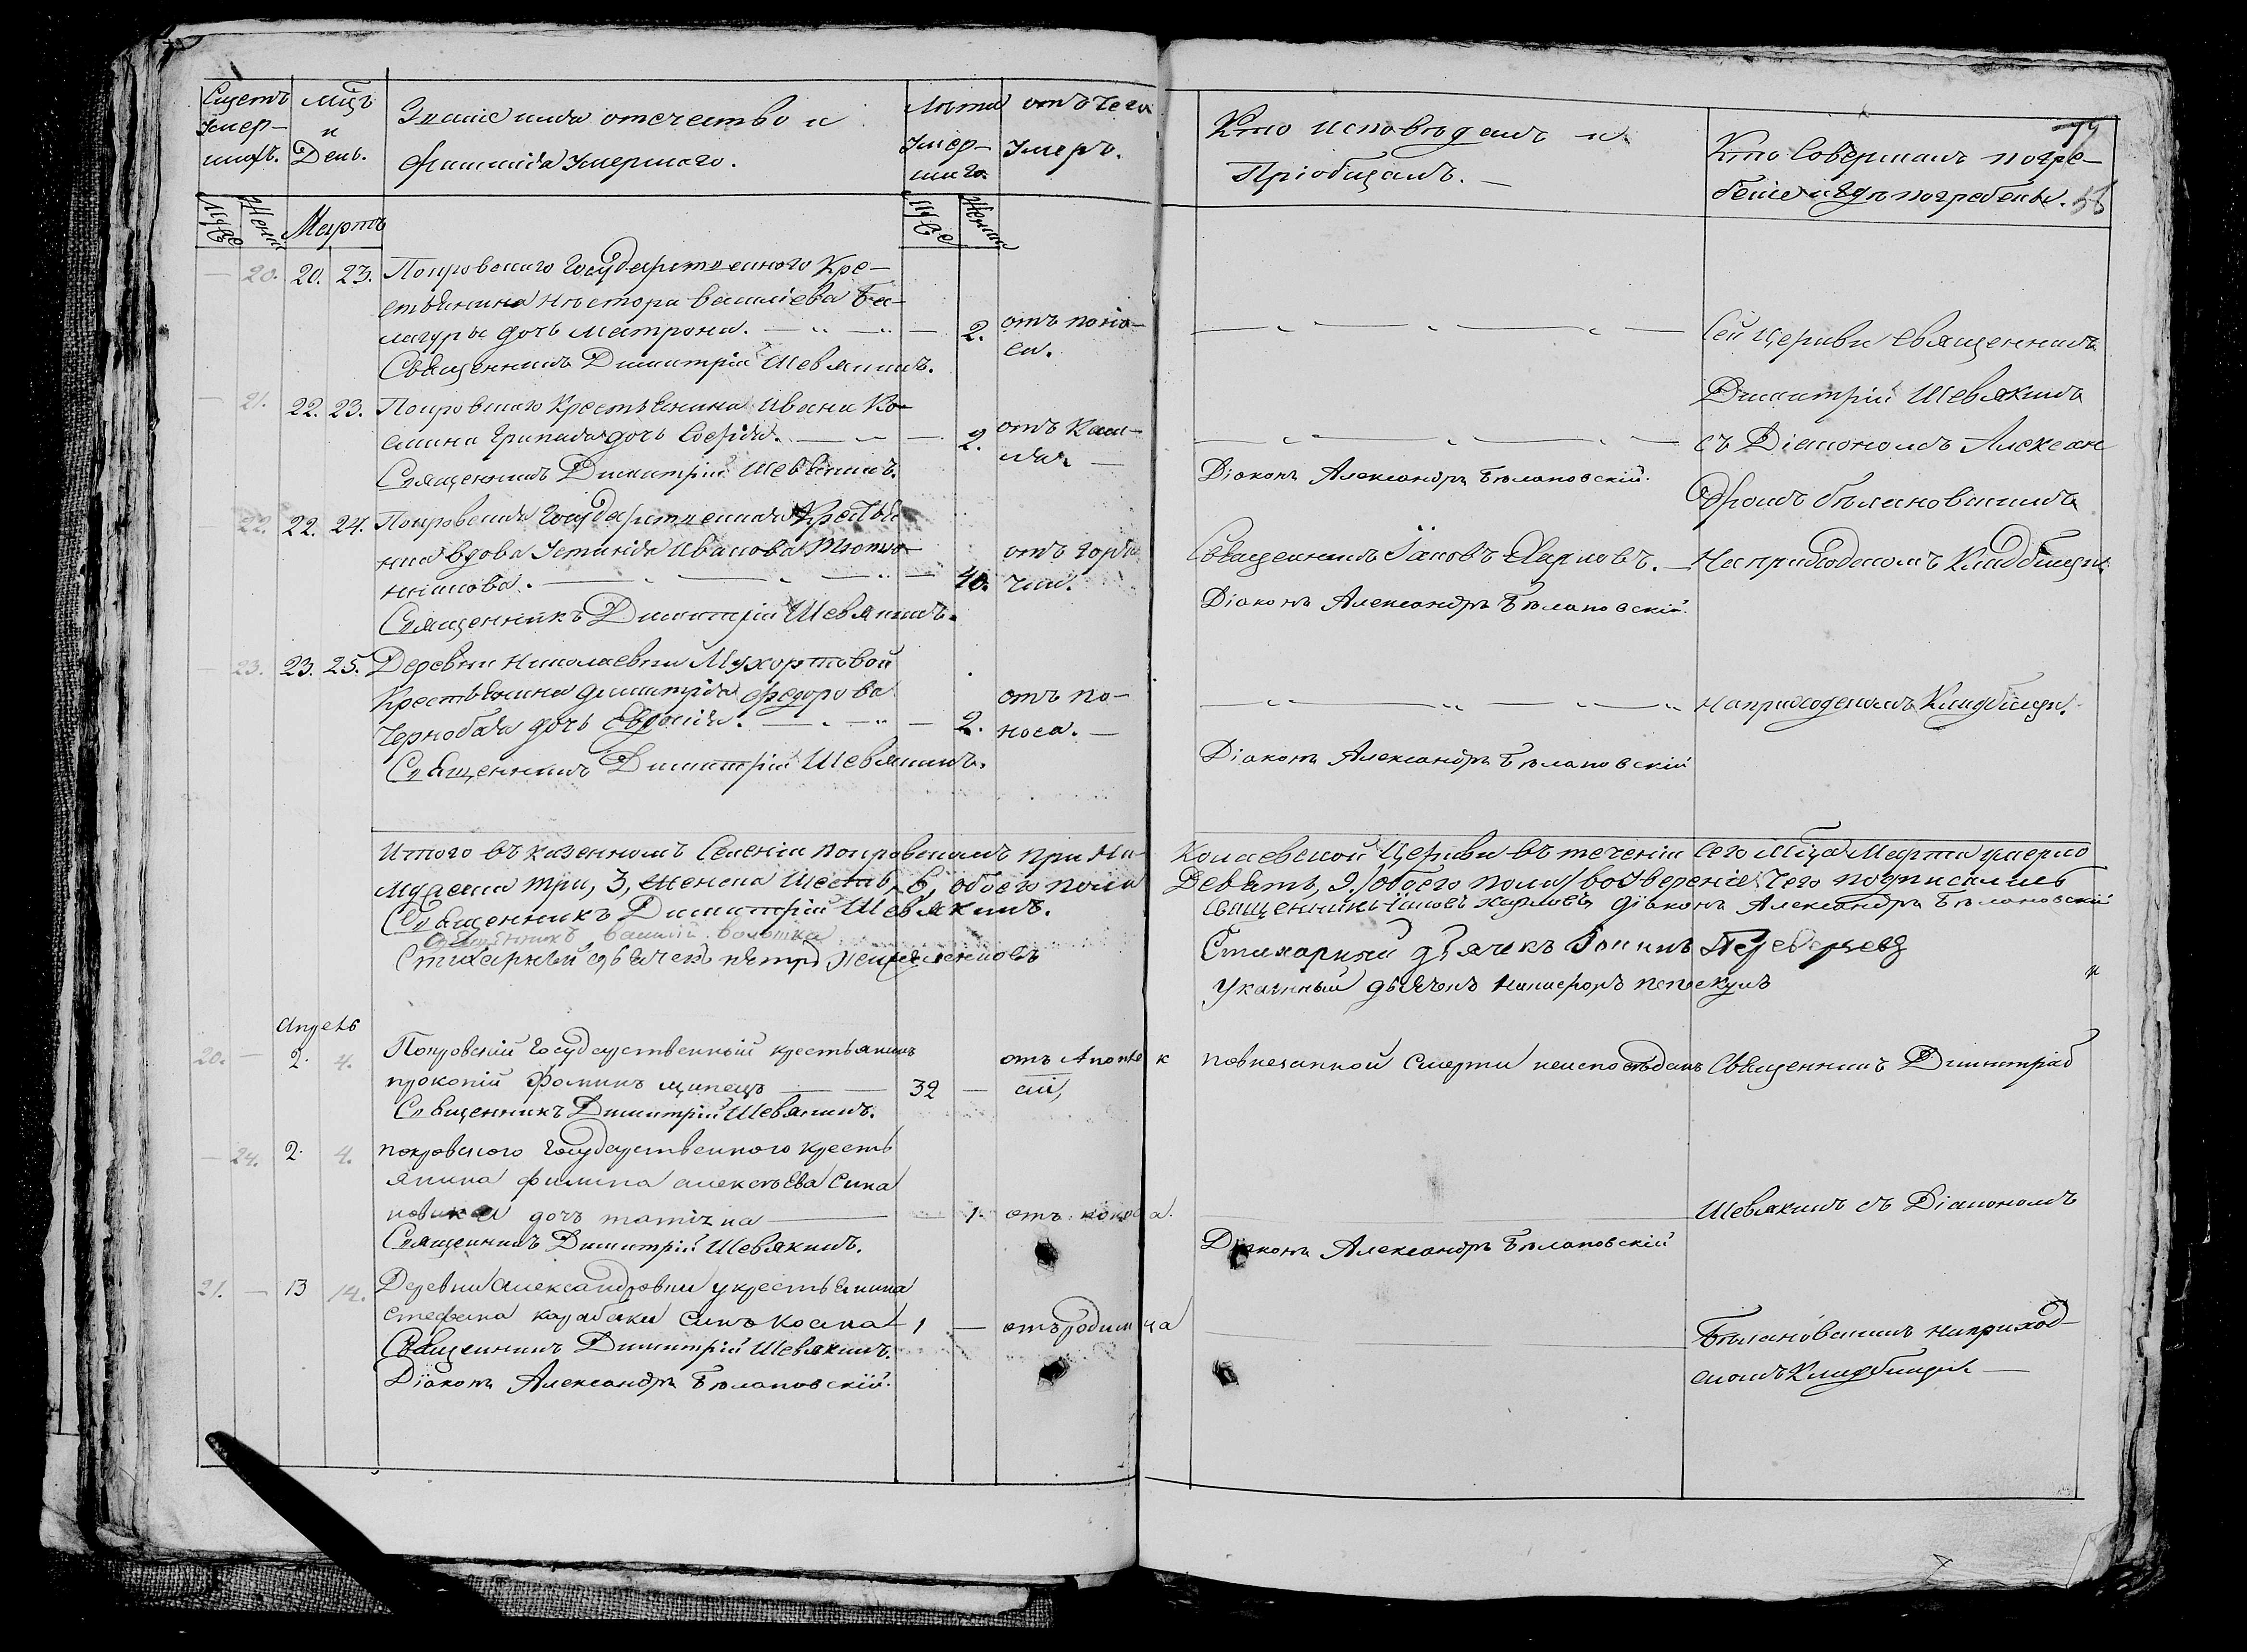 Счетъ
Умер-
шихъ.
Мцъ
и
День.
Званіе имя отечество и
фамилія Умершаго.
Лѣта
Умер-
шаго.
отъ чего
Умеръ.
Кто исповѣдалъ и
Пріобщалъ.
Кто Совершалъ погре-
беніе и гдѣ погребены.
Муже
Женс
Мартъ
Муже
Женск
— 20. 20. 23. Покровскаго Государственнаго Кре-
стьянина Нестора Василіева Ба-
лагуры дочь Матрона. — 2. отъ поно-
са.
Священникъ Димитрій Шевякинъ.
Сей Церкви священникъ
Димитрій Шевякинъ
— 21. 22. 23. Покровскаго Крестьянина Ивана Ко-
дочь Софія. — 2. отъ Каш-
ля. —
Священникъ Димитрій Шевякинъ.
Діаконъ Александръ Бѣлановскій.
съ Діакономъ Алексан
дромъ Бѣлановскимъ
22. 22. 24. Покровская Государственная Крестья
нка вдова Устинія Иванова
— 40. отъ горя
чки.
Священникъ Димитрій Шевякинъ.
Священникъ Іаковъ Карповъ. —
Діаконъ Александръ Бѣлановскій.
На приходскомъ Кладбищѣ.
— 23. 23. 25. Деревни Николаевки Мухортовой
Крестьянина Димитрія Федорова
Чернобая дочь Евдокія. — 2. отъ по-
носа. —
Священникъ Димитрій Шевякинъ.
Діаконъ Александръ Бѣлановскій
На приходскомъ Кладбищѣ.
Итого въ казенномъ Селеніи Покровскомъ при Ни-
колаевской Церкви въ теченіи сего Мца Марта умерло
Мужеска три, 3, женска Шесть, 6, обоего пола
Девять, 9. /обоего пола/ во увѣреніе чего подписались
Священникъ Димитрій Шевякинъ.
Священникъ Іаковъ Карповъ Діаконъ Александръ Бѣлановскій
Священникъ Василій
Стихарный дьячекъ Петръ
Стихарный дьячекъ Іоаннъ Переверзевъ
Указный дьячокъ Никифоръ
Апрель
20. — 2. 4. Покровскій Государственный крестьянинъ
Прокопій Фоминъ Щипецъ — 32 — отъ Апоплек
сіи,
Священникъ Димитрій Шевякинъ.
по внезапной смерти неисповѣданъ
Священникъ Димитрій
— 24. 2. 4. покровского Государственного кресть
янина филипа алексѣева Сина
дочь татіяна — 1. отъ поноса.
Священникъ Димитрій Шевякинъ.
Діаконъ Александръ Бѣлановскій
Шевякинъ съ Діакономъ
21. — 13 14. Деревни Александровки у крестьянина
стефана карабаки Синъ косма — 1 — отъ родимца
Священникъ Димитрій Шевякинъ.
Діаконъ Александръ Бѣлановскій.
Бѣлановскимъ на приход-
скомъ Кладбищѣ —